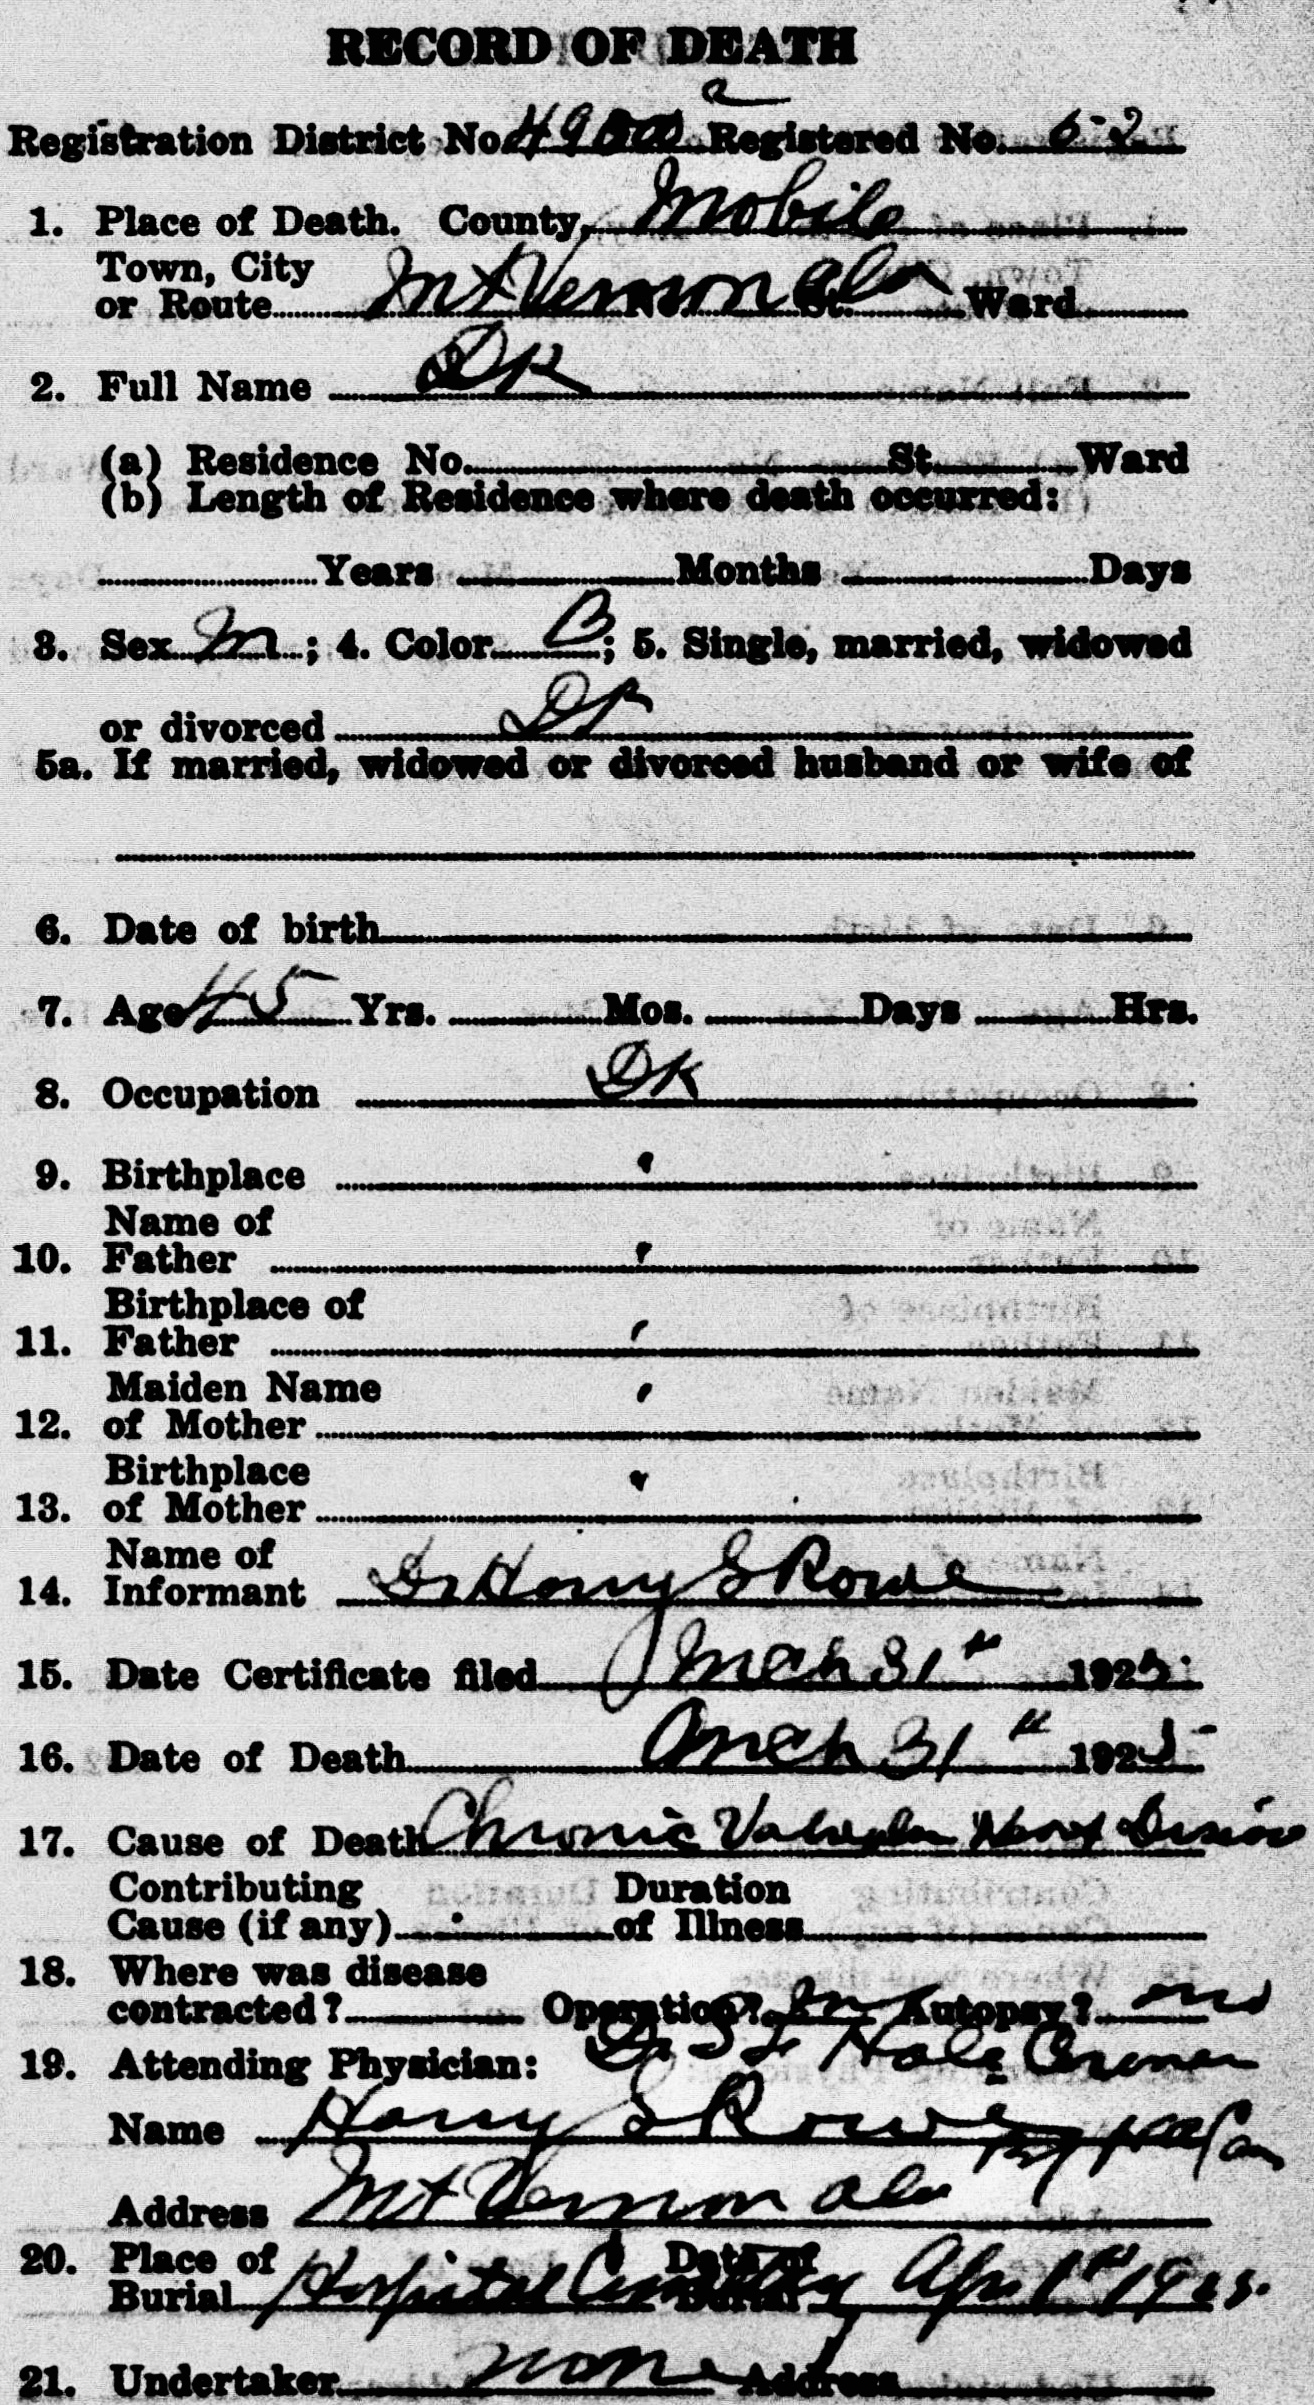 RECORD OF DEATH
Registration District No. Registered No. 52
1. Place of Death. County, Mobile
Town, City
or Route Mt Vernon No. Ala St. Ward
2. Full Name DK
(a) Residence No. St. Ward
(b) Length of Residence where death occurred:
Years Months Days
3. Sex M; 4. Color B; 5. Single, married, widowed
or divorced DK
5a. If married, widowed or divorced husband or wife of
6. Date of birth
7. Age 45 Yrs. Mos. Days Hrs.
8. Occupation DK
9. Birthplace "
Name of
10. Father "
Birthplace of
11. Father "
Maiden Name
12. of Mother "
Birthplace
13. of Mother "
Name of
14. Informant Dr Harry S Rowe
15. Date Certificate filed Mch 31st 1925
16. Date of Death Mch 31st 1925
17. Cause of Death Chronic Valvular Heart Disease
Contributing Duration
Cause (if any) of Illness
18. Where was disease
contracted? Operation? Autopsy? no
Dr S F Hale Coroner
19. Attending Physician:
Name Harry S Rowe
Address Mt Vernon Ala
20. Place of Date of
Burial Hospital Cemetery Burial Apr 1st 1925.
21. Undertaker none Address